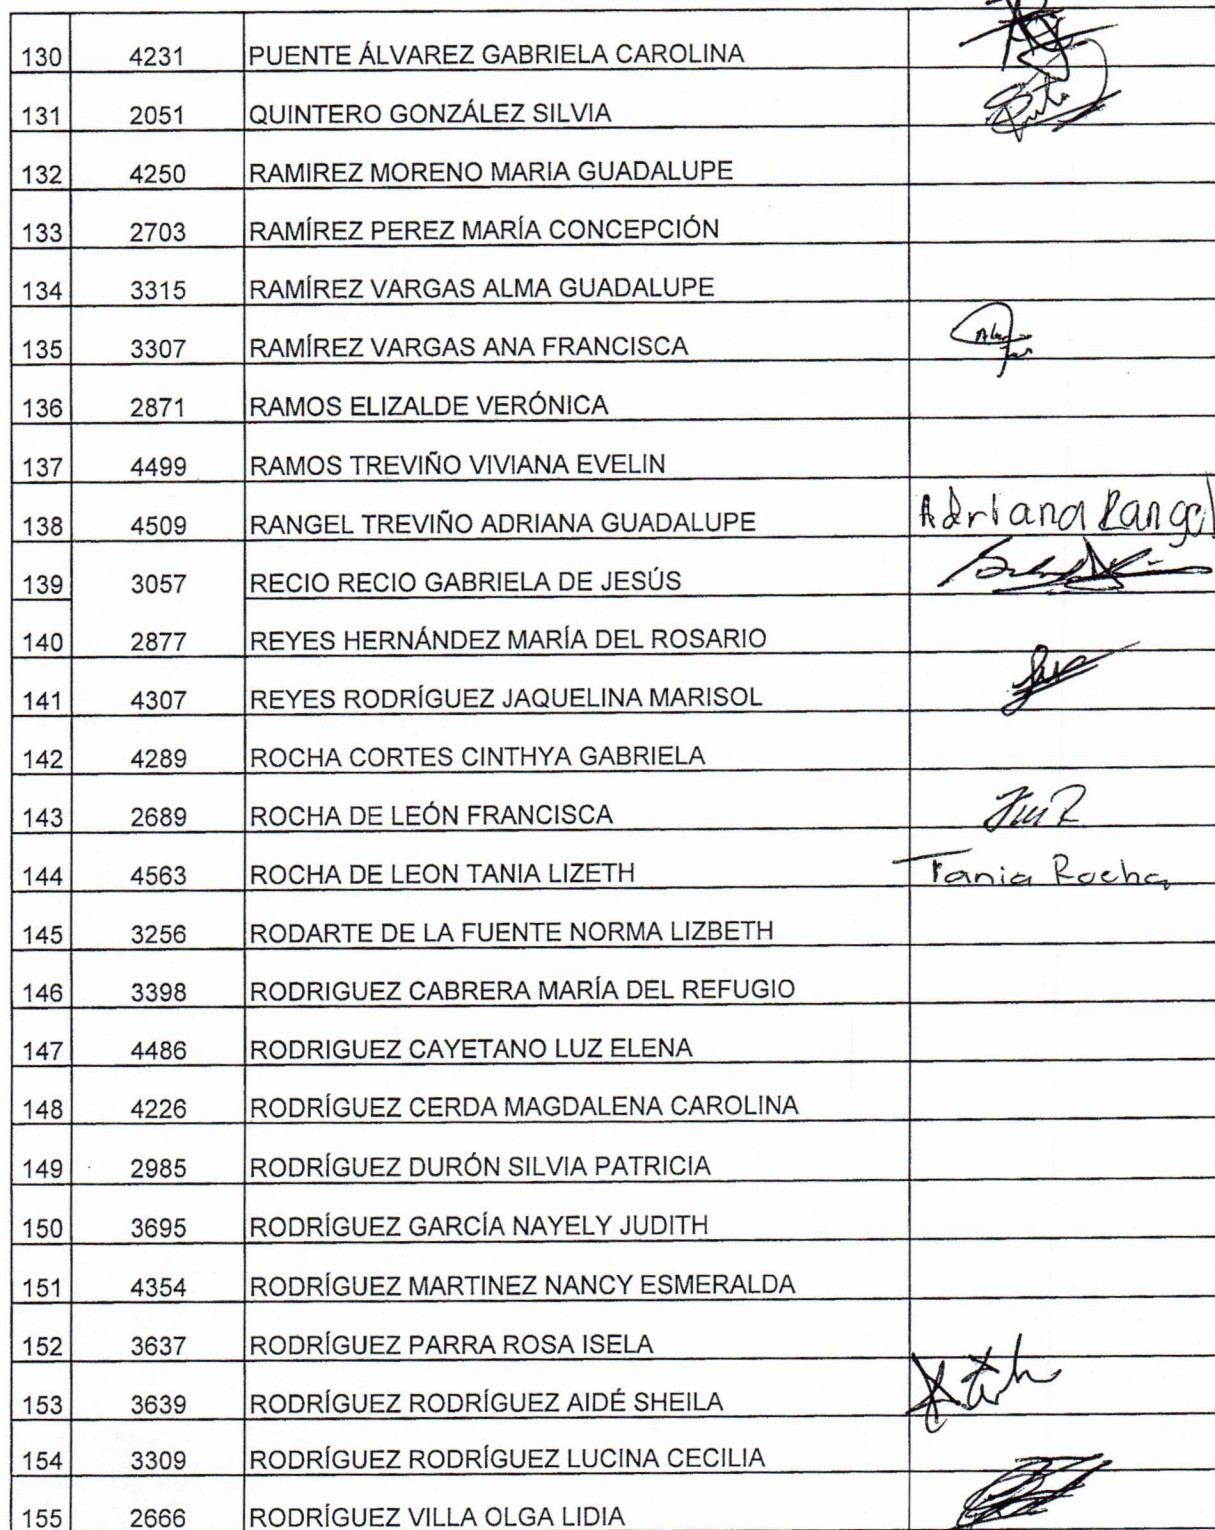 130 4231 PUENTE ÁLVAREZ GABRIELA CAROLINA
131 2051 QUINTERO GONZÁLEZ SILVIA
132 4250 RAMIREZ MORENO MARIA GUADALUPE
133 2703 RAMÍREZ PEREZ MARÍA CONCEPCIÓN
134 3315 RAMÍREZ VARGAS ALMA GUADALUPE
135 3307 RAMÍREZ VARGAS ANA FRANCISCA
136 2871 RAMOS ELIZALDE VERÓNICA
137 4499 RAMOS TREVIÑO VIVIANA EVELIN
138 4509 RANGEL TREVIÑO ADRIANA GUADALUPE Adriana Rangel
139 3057 RECIO RECIO GABRIELA DE JESÚS
140 2877 REYES HERNÁNDEZ MARÍA DEL ROSARIO
141 4307 REYES RODRÍGUEZ JAQUELINA MARISOL
142 4289 ROCHA CORTES CINTHYA GABRIELA
143 2689 ROCHA DE LEÓN FRANCISCA
144 4563 ROCHA DE LEON TANIA LIZETH Tania Rocha
145 3256 RODARTE DE LA FUENTE NORMA LIZBETH
146 3398 RODRIGUEZ CABRERA MARÍA DEL REFUGIO
147 4486 RODRIGUEZ CAYETANO LUZ ELENA
148 4226 RODRÍGUEZ CERDA MAGDALENA CAROLINA
149 2985 RODRÍGUEZ DURÓN SILVIA PATRICIA
150 3695 RODRÍGUEZ GARCÍA NAYELY JUDITH
151 4354 RODRÍGUEZ MARTINEZ NANCY ESMERALDA
152 3637 RODRÍGUEZ PARRA ROSA ISELA
153 3639 RODRÍGUEZ RODRÍGUEZ AIDÉ SHEILA
154 3309 RODRÍGUEZ RODRÍGUEZ LUCINA CECILIA
155 2666 RODRÍGUEZ VILLA OLGA LIDIA